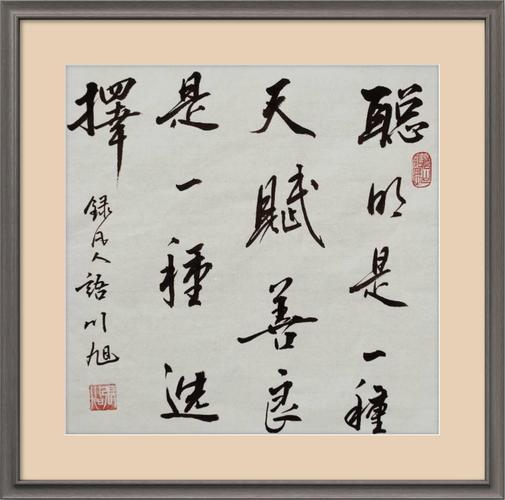 聰明是一種
天賦善良
是一種選
擇
録凡人語川旭